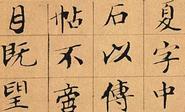 夏字中
石以傳
帖不啻
目既望